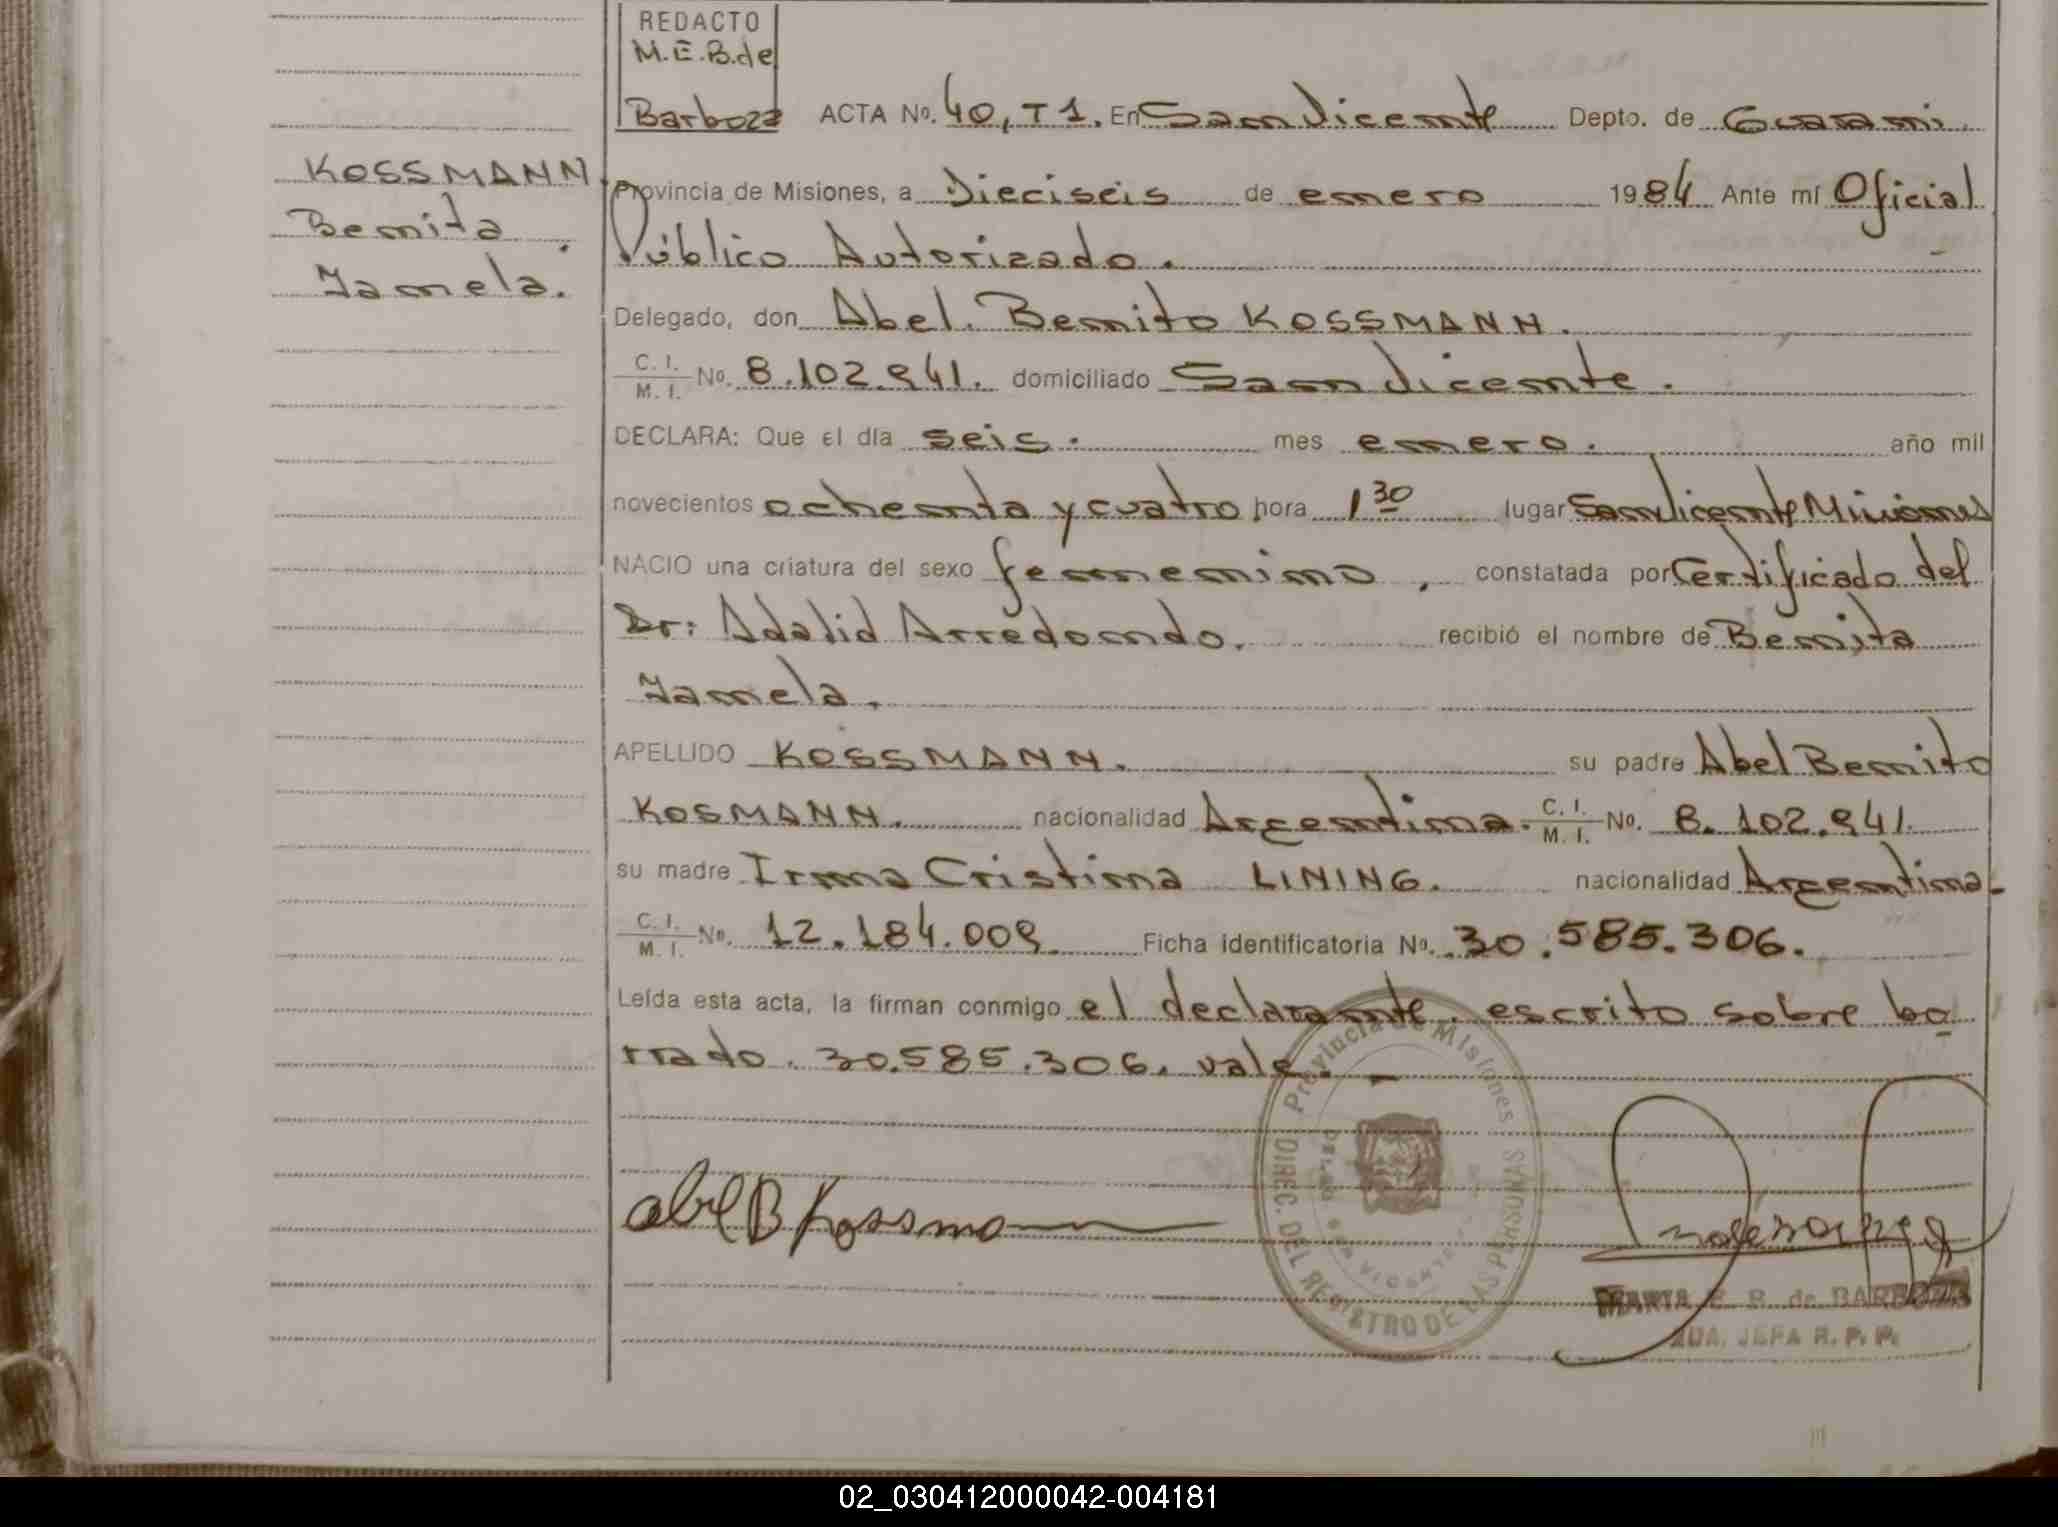 REDACTO
M.E.B.de
Barboza ACTA No. 40, T1. En San Vicente Depto. de Guarani.
KOSSMANN
Benita
Yamela.
Provincia de Misiones, a Dieciseis de enero 1984 Ante mí Oficial
Público Autorizado.
Delegado, don Abel. Benito KOSSMANN.
C. I.
M. I. No. 8.102.941. domiciliado San Vicente.
DECLARA: Que el día seis. mes enero. año mil
novecientos ochenta y cuatro hora 1 30 lugar San Vicente Misiones
NACIO una criatura del sexo femenino, constatada por Certificado del
Dr: Adalid Arredondo. recibió el nombre de Benita
Yamela.
APELLIDO KOSSMANN. su padre Abel Benito
KOSMANN. nacionalidad Argentina. C. I. M. I. No. 8.102.941.
su madre Irma Cristina LINING. nacionalidad Argentina-
C. I.
M. I. No. 12.184.009. Ficha identificatoria No. 30.585.306.
Leída esta acta, la firman conmigo el declarante. escrito sobre bo
rrado. 30.585.306. vale. -
Provincia de Misiones
DIREC. DEL REGISTRO DE LAS PERSONAS
abel B Kossmann
MARIA E. B. de BARBOZA
2DA. JEFA R. P. P.
02_030412000042-004181